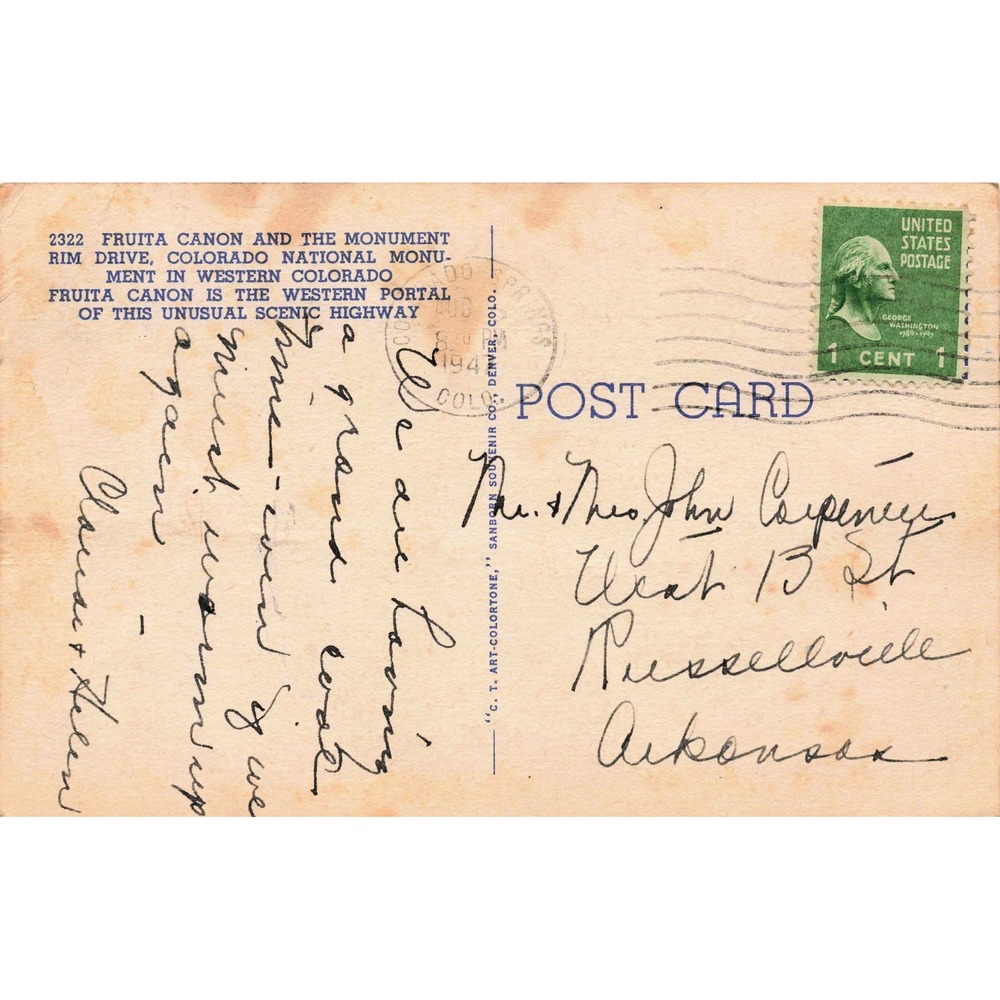 2322 FRUITA CANON AND THE MONUMENT
RIM DRIVE, COLORADO NATIONAL MONU-
MENT IN WESTERN COLORADO
FRUITA CANON IS THE WESTERN PORTAL
OF THIS UNUSUAL SCENIC HIGHWAY
We are having
a grand cool
time - even if we
must warm up
again -
Claude + Helen
"C. T. ART-COLORTONE," SANBORN SOUVENIR CO., DENVER, COLO.
COLO
UNITED
STATES
POSTAGE
GEORGE
WASHINGTON
1789-1797
1 CENT 1
POST CARD
Mr. + Mrs John Carpenter
West 13 St
Russellville
Arkansas